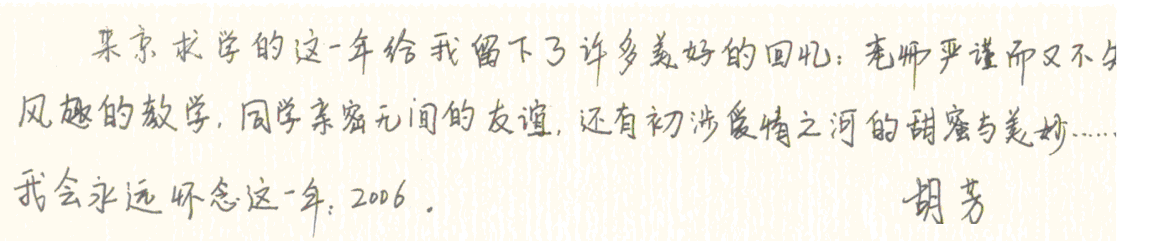 来京求学的这一年给我留下了许多美好的回忆：老师严谨而又不失
风趣的教学，同学亲密无间的友谊，还有初涉爱情之河的甜蜜与美妙……
我会永远怀念这一年：2006． 胡芳